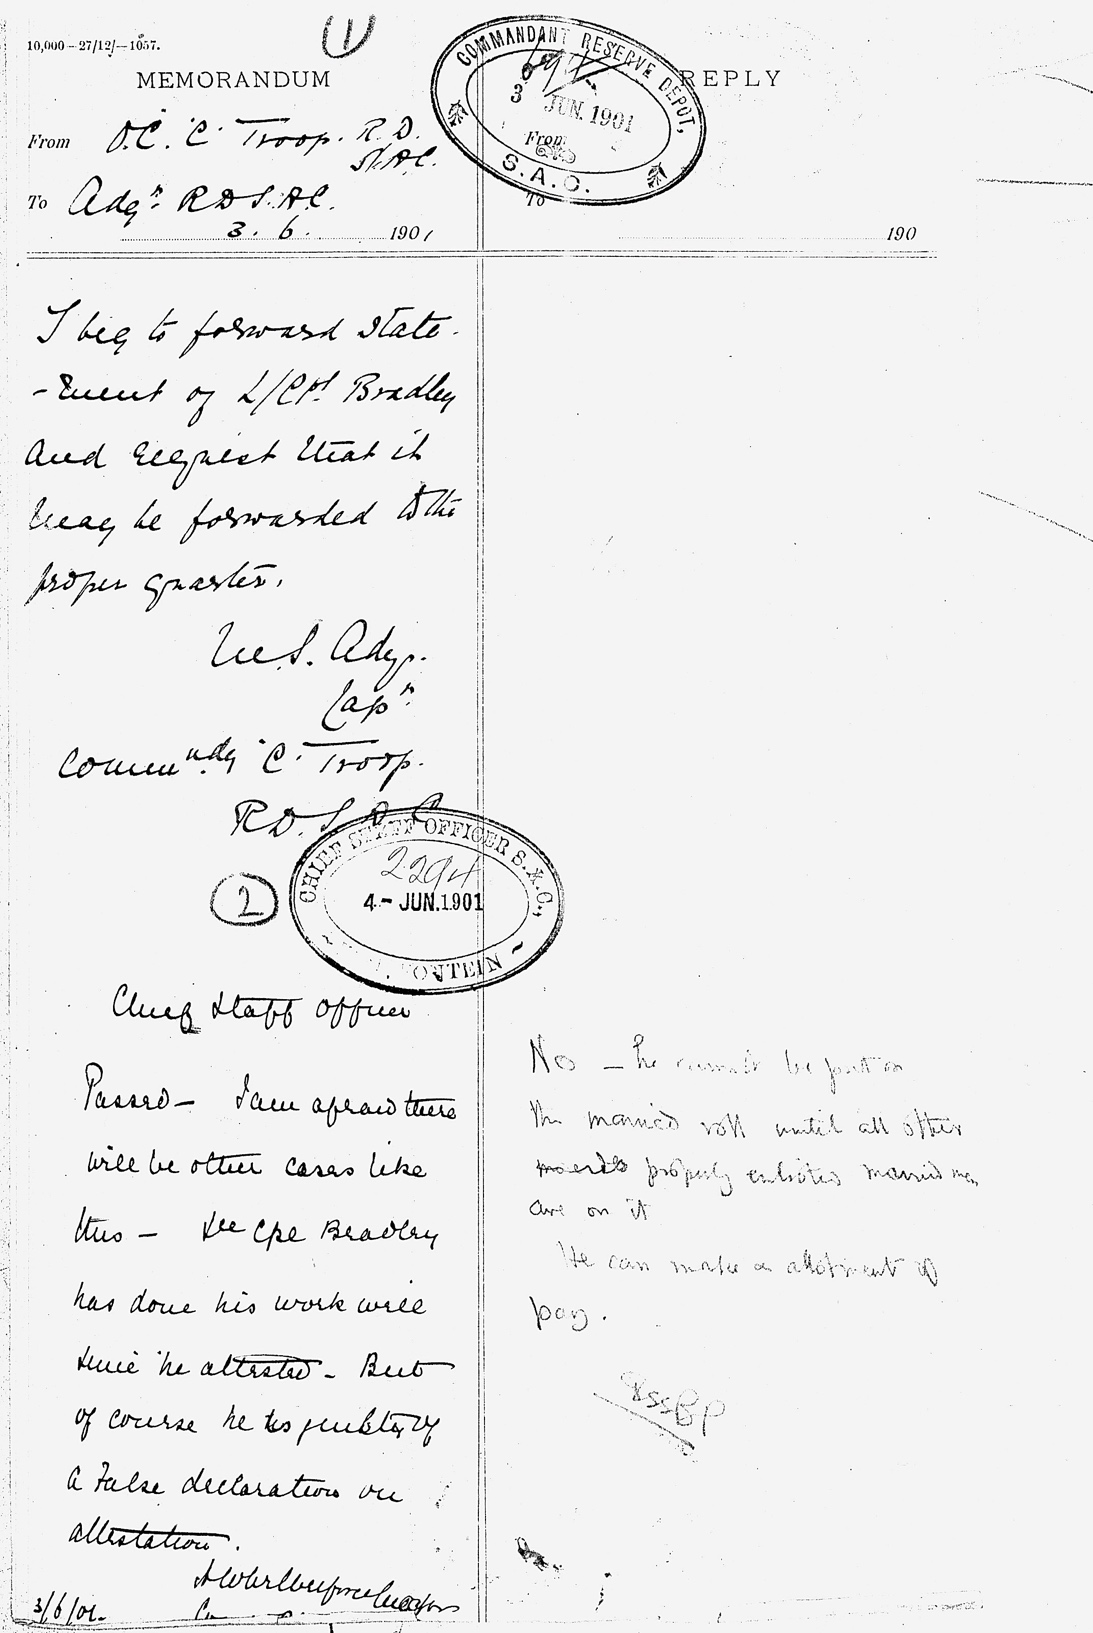 10,000–27/12/–1057.
1
MEMORANDUM
From O.C. 'C' Troop. R.D.
S.A.C.
To Adjt. R D S.A.C.
3. 6. 1901
COMMANDANT RESERVE DEPOT,
3 JUN. 1901
S.A.C.
REPLY
From
To
190
I beg to forward state-
-ment of L/Cpl Bradley
and request that it
may be forwarded to the
proper quarter.
Capn
Commndg 'C' Troop.
R.D. S A C
2
CHIEF STAFF OFFICER S.A.C.,
2294
4- JUN.1901
FONTEIN
Chief Staff Officer
Passed – I am afraid there
will be other cases like
this – Lce Cpl Bradley
has done his work well
since he attested – But
of course he is guilty of
a false declaration on
attestation.
3/6/01.
No – he cannot be put on
the married roll until all other
properly enlisted married men
are on it
He can make an allotment of
pay.